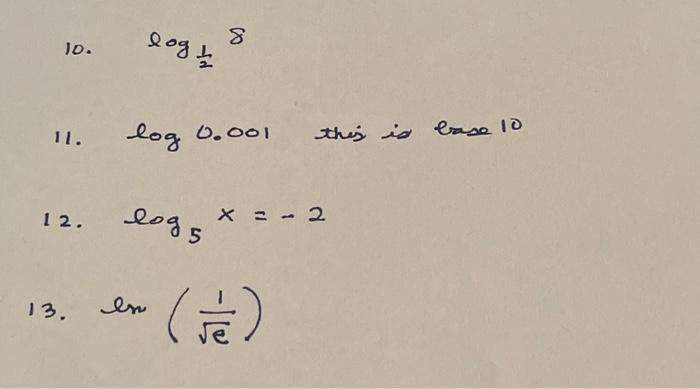 10. log_{1/2} 8
11. log 0.001 this is base 10
12. log_5 x = - 2
13. ln (1/√e)